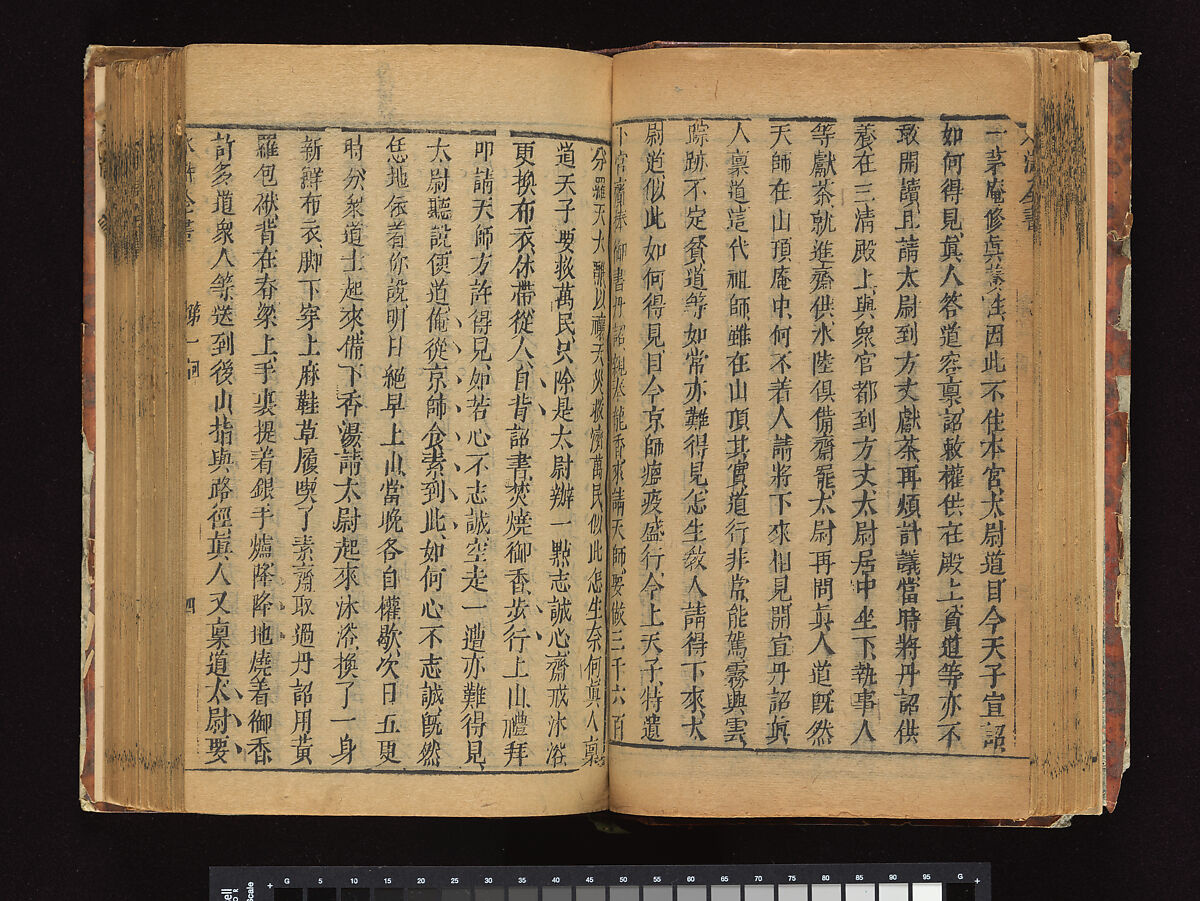 一茅庵修眞養性因此不住本宮太尉道目今天子宣詔
如何得見眞人答道容稟詔敕權供在殿上貧道等亦不
敢開讀且請太尉到方丈獻茶再煩計議當時將丹詔供
養在三清殿上與衆官都到方丈太尉居中坐下執事人
等獻茶就進齋供水陸俱備齋罷太尉再問眞人道既然
天師在山頂庵中何不着人請將下來相見開宣丹詔眞
人稟道這代祖師雖在山頂其實道行非常能駕霧興雲
踪跡不定貧道等如常亦難得見怎生教人請得下來太
尉道似此如何得見目今京師瘟疫盛行今上天子特遣
下官齎捧御書丹詔親奉龍香來請天師要做三千六百
分羅天大醮以禳天災救濟萬民似此怎生奈何眞人稟
道天子要救萬民只除是太尉辦一點志誠心齋戒沐浴
更換布衣休帶從人自背詔書焚燒御香步行上山禮拜
叩請天師方許得見如若心不志誠空走一遭亦難得見
太尉聽說便道俺從京師食素到此如何心不志誠既然
恁地依着你說明日絕早上山當晚各自權歇次日五更
時分衆道士起來備下香湯請太尉起來沐浴換了一身
新鮮布衣脚下穿上麻鞋草履喫了素齋取過丹詔用黃
羅包袱背在脊梁上手裏提着銀手爐降降地燒着御香
許多道衆人等送到後山指與路徑眞人又稟道太尉要
第一囘 四
G 5 10 15 20 25 30 35 40 45 50 55 60 65 70 75 80 85 90 95 G
Scale